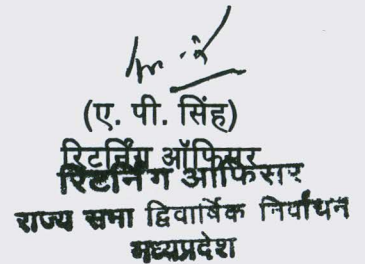 (ए. पी. सिंह)
रिटर्निंग ऑफिसर
रिटर्निंग ऑफिसर
राज्य सभा द्विवार्षिक निर्वाचन
मध्यप्रदेश